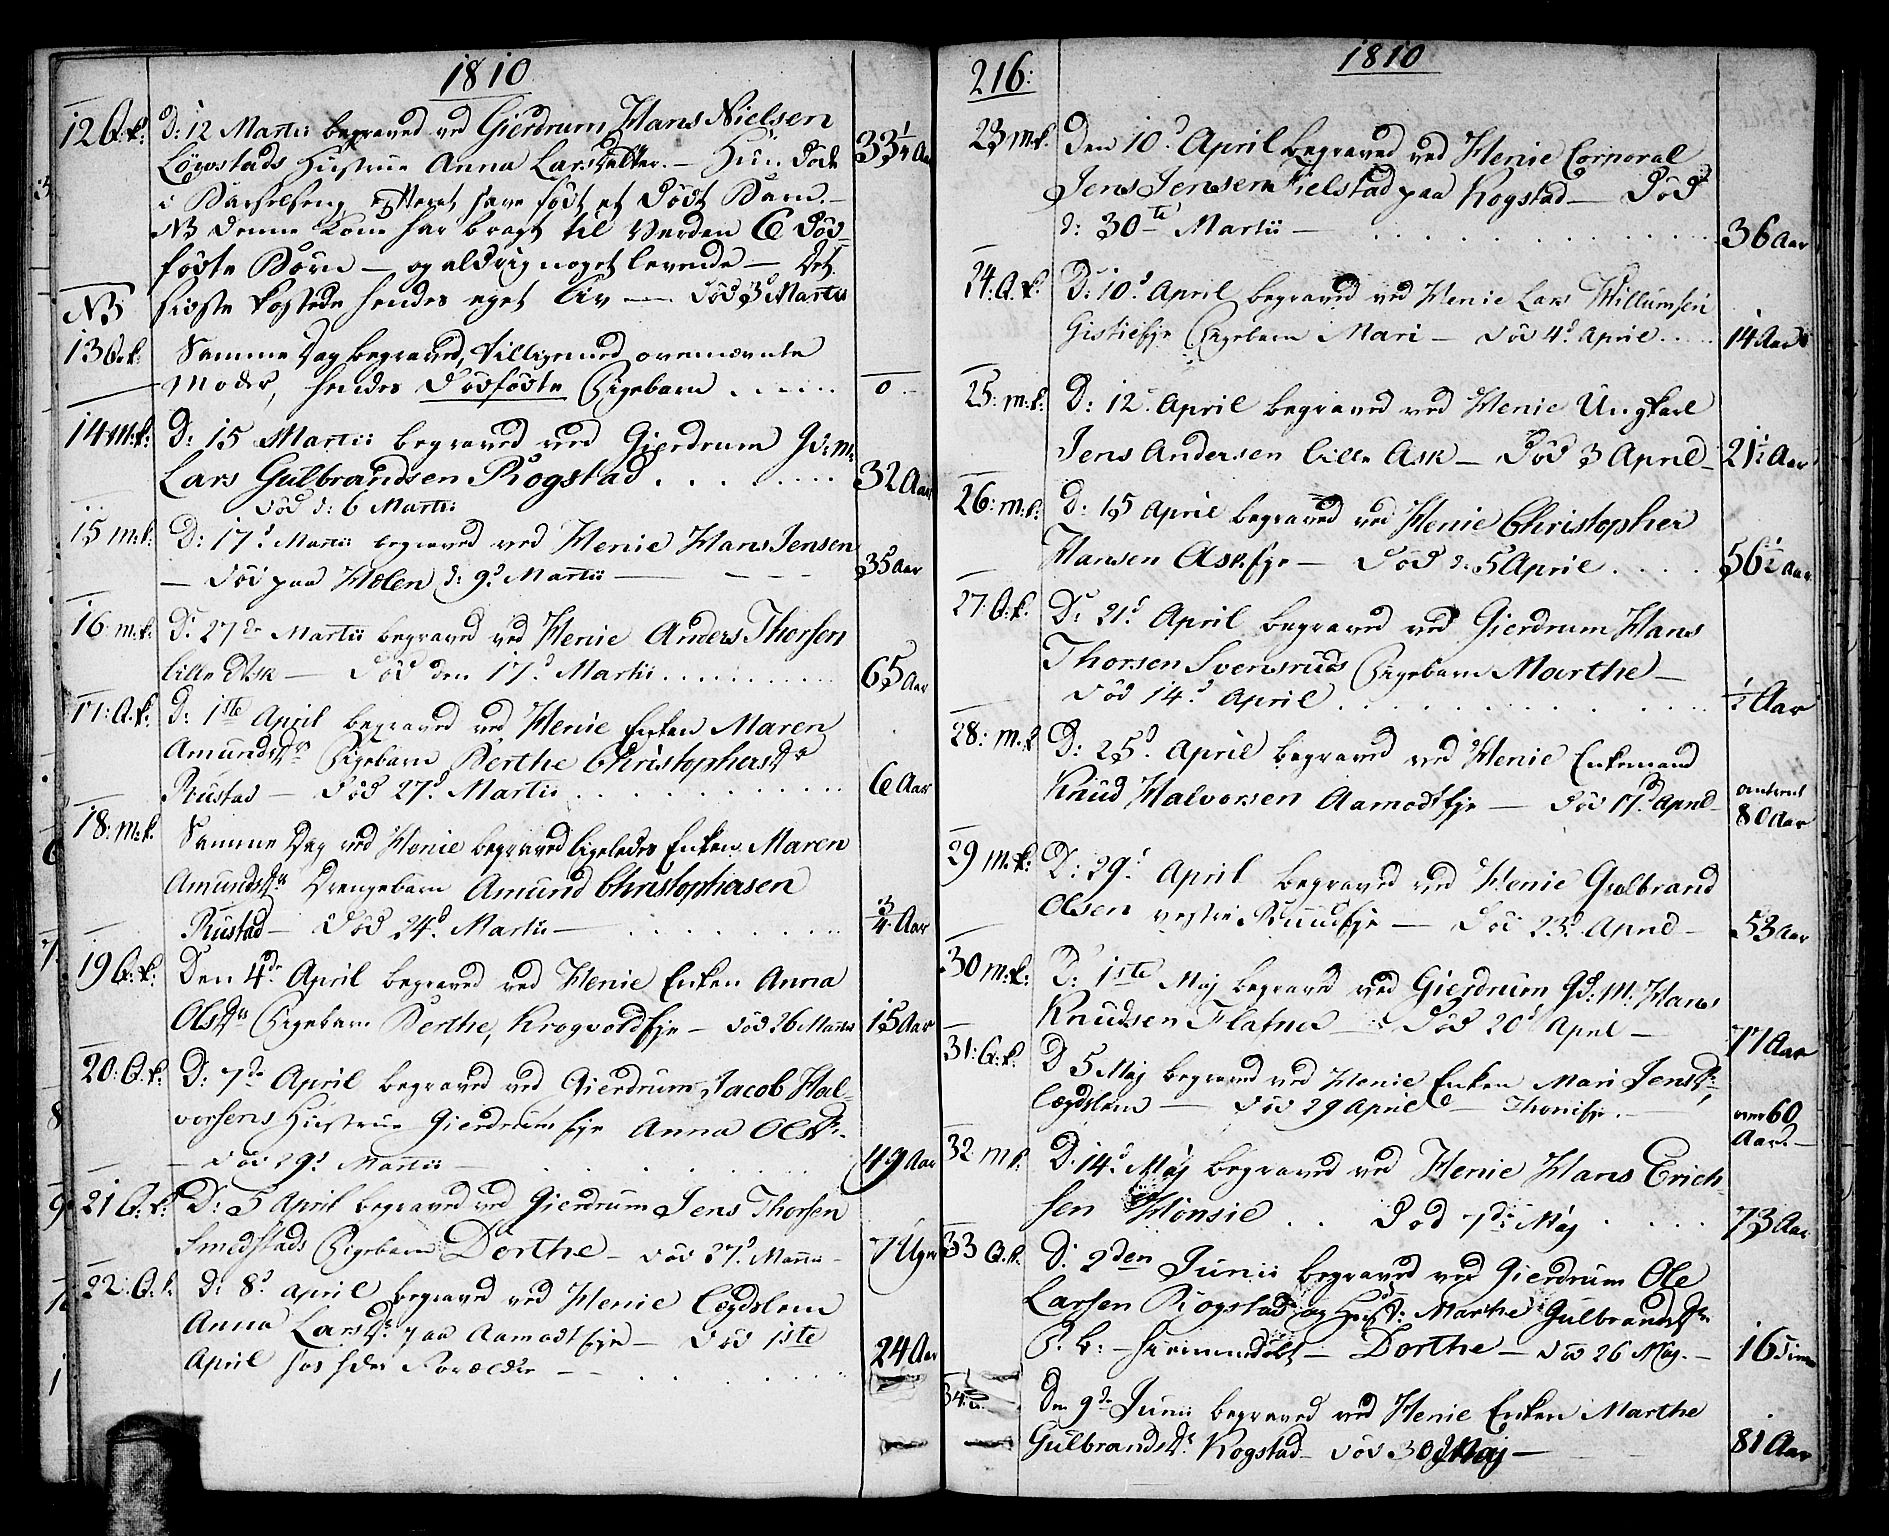 1810
12 Q.k. D: 12 Martii begraved ved Gierdrum Hans Nielsen
Løwstads Hustrue Anna Larsdatter. – Hun døde
i Barselseng efterat have født et dødt Barn. –
NB denne Kone har bragt til Verden 6 død-
fødte Børn – og aldrig noget levende – Det
NB sidste kostede hendes eget Liv – død 3d Martii
33 1/4 Aar
13 Q.k. Samme Dag begraved, tilligemed ovennævnte
Moder, hendes dødfødte Pigebarn . . . . . 0
14 M.k. D: 15 Martii begraved ved Gierdrum Gd: M:
Lars Gulbrandsen Rogstad . . . . . . 32 Aar
død d: 6 Martii
15 M.k. D: 17d Martii begraved ved Henie Hans Jensen
– død paa Holen d: 9d Martii – – – – 35 Aar
16. M.k. D: 27de Martii begraved ved Henie Anders Thorsen
lille Ask – død den 17d Martii . . . . . . 65 Aar
17. Q.k. D: 1ste April begraved ved Henie Enken Maren
Amundsdr Pigebarn Berthe Christophersdr
Rustad – død 27d Martii . . . . . . 6 Aar
18. M.k. Samme Dag ved Henie begraved ligeledes Enken Maren
Amundsdr Drengebarn Amund Christophersen
Rustad – død 24d Martii – . . . . . 3/4 Aar
19 Q.k. Den 4de April begraved ved Henie Enken Anna
Olsdr Pigebarn Berthe, Krogvoldeje – død 26 Martii 15 Aar
20. Q.k. D: 7de April begraved ved Gierdrum Jacob Hal-
vorsens Hustrue Gierdrum eje Anna Olsdr. –
– død 29d Martii – . . . . . 49 Aar
21 Q.k. D: 5 April begraved ved Gierdrum Jens Thorsen
Smedstads Pigebarn Dorthe – død 27d Martii – 7 Uger
22. Q.k. D: 8d April begraved ved Henie Lægdslem
Anna Larsdr paa Aamodt eje – død 1ste
April hos sine Forældre – – . . . . . 24 Aar
216:
1810
23 M.k. Den 10d April begraved ved Henie Corporal
Jens Jensen Fielstad paa Kogstad – død
d: 30te Martii – . . . . . . 36 Aar
24. Q.k. D: 10d April begraved ved Henie Lars Willumsen
Gistieeje Pigebarn Mari – død 4d April . . . . 14 Aar
25: M.k. D: 12d April begraved ved Henie Ungkarl
Jens Andersen lille Ask – død 3 April – 21 1/2 Aar
26. M.k. D: 15 April begraved ved Henie Christopher
Hansen Ask eje – død d: 5 April . . . . 56 1/2 Aar
27. Q.k. D: 21d April begraved ved Gierdrum Hans
Thorsen Svensruds Pigebarn Marthe –
død 14d April . . . . . . 1/2 Aar
28: M.k. D: 25d April begraved ved Henie Enkemand
Knud Halvorsen Aamodt eje – død 17d April – omtrent
80 Aar
29 M.k. D: 29d April begraved ved Henie Gulbrand
Olsen vestre Ruud eje – død 23d April – 53 Aar
30 M.k: D: 1ste Maj begraved ved Gierdrum Gd: M: Hans
Knudsen Flatner – død 20d April – 77 Aar
31: Q.k. D 5 Maj begraved ved Henie Enken Mari Jensdr,
Lægdslem – død 29 April – eje. – over 60
Aar. –
32. M.k. D: 14d Maj begraved ved Henie Hans Erich-
sen Hønsie . . død 7de Maj . . . . 73 Aar
33 Q.k. D: 2den Junii begraved ved Gierdrum Ole
Larsen Rogstad og Hust: Marthe Gulbrandsdr
P. b: – hiemmedøbt – Dorthe – død 26 Maj. – 16 Timer
34: Den 9de Junii begraved ved Henie Enken Marthe
Gulbrandsdr Kogstad – død 30 Maj – 81 Aar